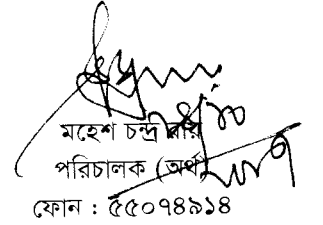 মহেশ চন্দ্র রায়
পরিচালক (অর্থ)
ফোন : ৫৫০৭৪৯১৪